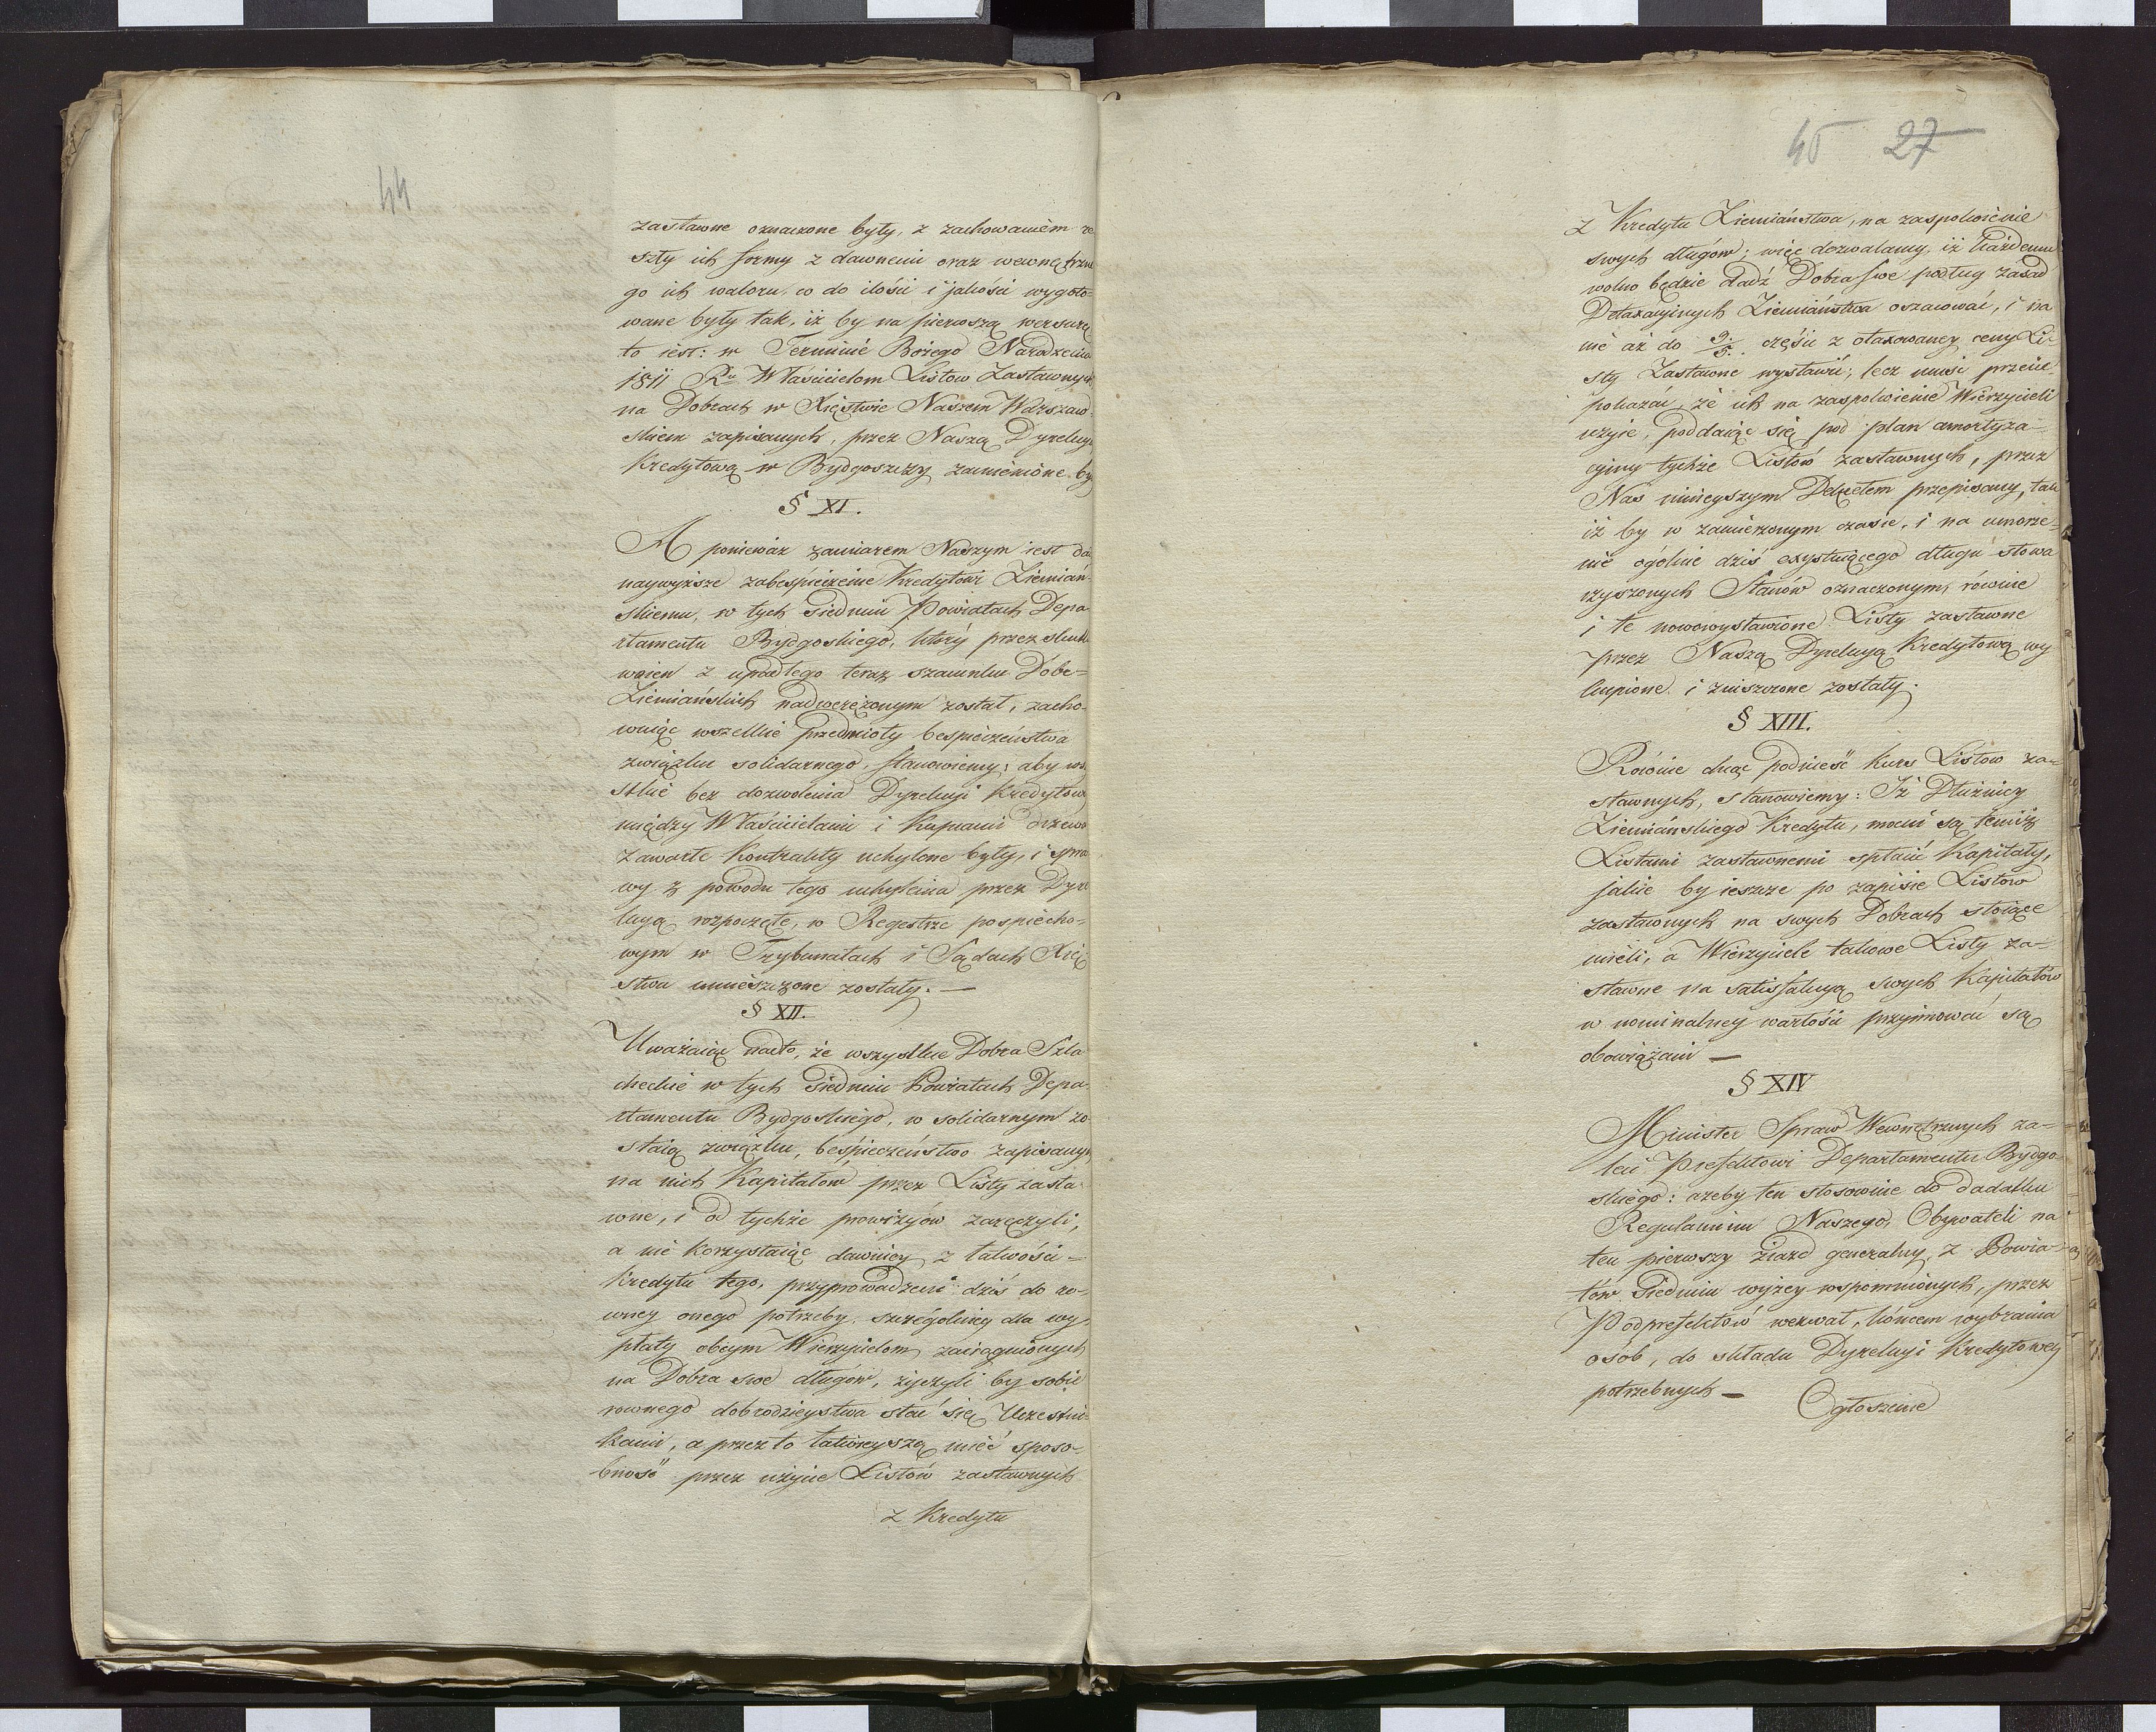 44
zastawne oznaczone były, z zachowaniem re
szty ich formy z dawnemi oraz wewnętrzne
go ich waloru, co do ilości i jakości wygoto=
wane były tak, iż by na pierwszą wersurę
to iest: w Terminie Bożego Narodzenia
1811 Ru Właścicielom Listow Zastawnych
na Dobrach w Xięstwie Naszem Warszaw-
skiem zapisanych, przez Naszą Dyrekcyą
Kredytową w Bydgoszczy zamienione by
§ XI.
A ponieważ zamiarem Naszym iest dać
naywyższe zabespieczenie Kredytowi Ziemiań-
skiemu, w tych siedmiu Powiatach Depa-
rtamentu Bydgoskiego, który przez skutki
woien z upadłego teraz szacunku Dobr=
Ziemiańskich nadwerężonym został, zacho-
wuiąc wszelkie przedmioty bespieczeństwa
związku solidarnego, stanowiemy; aby wsze
stkie bez dozwolenia Dyrekcyi Kredytowey
między Właścicielami i Kupcami drzewa
zawarte Kontrakty uchylone były, i spra-
wy z powodu tego uchylenia przez Dyre
kcyą rozpoczęte, w Regestrze pospiecho-
wym w Trybunałach i Sądach Xię
stwa umieszczone zostały. —
§ XII.
Uważaiąc nadto, że wszystkie Dobra Szla
checkie w tych siedmiu Powiatach Depa-
rtamentu Bydgoskiego, w solidarnym zo-
staią związku, bespieczeństwo zapisanych
na nich Kapitałów przez Listy zasta-
wne, i od tychże prowizyów zaręczyli,
a nie korzystaiąc dawniey z łatwości=
Kredytu tego, przyprowadzeni dziś do ró-
wney onego potrzeby, szczególniey dla wy-
płaty obcym Wierzycielom zaciągnionych
na Dobra swe długów, życzyli by sobie
rownego dobrodzieystwa stać się Uczestni-
kami, a przez to łatwieyszą mieć sposo-
bność przez użycie Listów zastawnych
z Kredytu
45 27
z Kredytu Ziemiaństwa, na zaspokoienie
swych długów; więc dozwalamy, iż każdemu
wolno będzie dadź Dobra swe podług zasad
Detaxacyinych Ziemiaństwa oszacować, i na
nie aż do 3/5. części z otaxowaney ceny Li-
sty Zastawne wystawić; lecz musi przecie
pokazać, że ich na zaspokoienie Wierzycieli
użyie, poddaiąc się pod plan amortyza-
cyiny tychże Listów zastawnych, przez
Nas ninieyszym Dekretem przepisany, tak
iż by w zamierzonym czasie, i na umorze-
nie ogólnie dziś exystuiącego długu stowa
rzyszonych Stanów oznaczonym, rownie
i te nowowystawione Listy zastawne
przez Naszą Dyrekcyą Kredytową wy
kupione i zniszczone zostały.
§ XIII.
Rownie chcąc podnieść kurs Listow za=
stawnych, stanowiemy: Iż Dłużnicy
Ziemiańskiego Kredytu, mocni są temiż
Listami zastawnemi spłacić Kapitały,
jakie by ieszcze po zapisie Listow
zastawnych na swych Dobrach stoiące
mieli, a Wierzyciele takowe Listy za-
stawne na satisfakcyą swych Kapitałów
w nominalney wartości przyimować są
obowiązani —
§ XIV
Minister Spraw Wewnętrznych za-
leci Prefektowi Departamentu Bydgo-
skiego: ażeby ten stosownie do dodatku
Regulaminu Naszego, Obywateli na
ten pierwszy ziazd generalny, z Powia-
tów Siedmiu wyżey wspomnionych, przez
Podprefektów wezwał, końcem wybrania
osób, do składu Dyrekcyi Kredytowey
potrzebnych —
Ogłoszenie